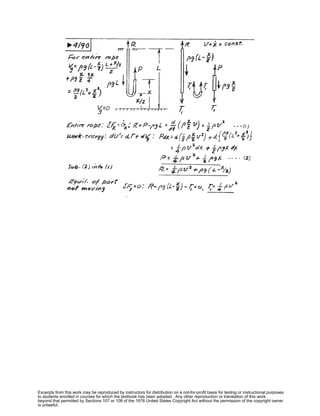 ►4/90
For entire rope
V_g = ρg(L-x/2) (L+x/2)/2
+ρg x/2 x/4
= ρg/2 (L²+x²/2)
V_g=0
R
P
ρgL
L
x
x/2
R
U=ẋ = const.
ρg(L-x/2)
P
ρg x/2
T₁
T₁
T₀
T₀
Entire rope: ΣF=Ġ_x; R+P-ρgL = d/dt (ρ x/2 U) = 1/2 ρU² ---(1)
Work-energy: dU'=dT+dV_g: Pdx=d(1/2 ρ x/2 U²)+d{ρg/2 (L²+x²/2)}
= 1/4 ρU²dx + 1/2 ρgx dx
P = 1/4 ρU² + 1/2 ρgx ---- (2)
Sub. (2) into (1)
R = 1/4 ρU² + ρg(L-x/2)
Equil. of part
not moving
ΣF=0; R-ρg(L-x/2)-T₁=0, T₁= 1/4 ρU²
Excerpts from this work may be reproduced by instructors for distribution on a not-for-profit basis for testing or instructional purposes
to students enrolled in courses for which the textbook has been adopted. Any other reproduction or translation of this work
beyond that permitted by Sections 107 or 108 of the 1976 United States Copyright Act without the permission of the copyright owner
is unlawful.